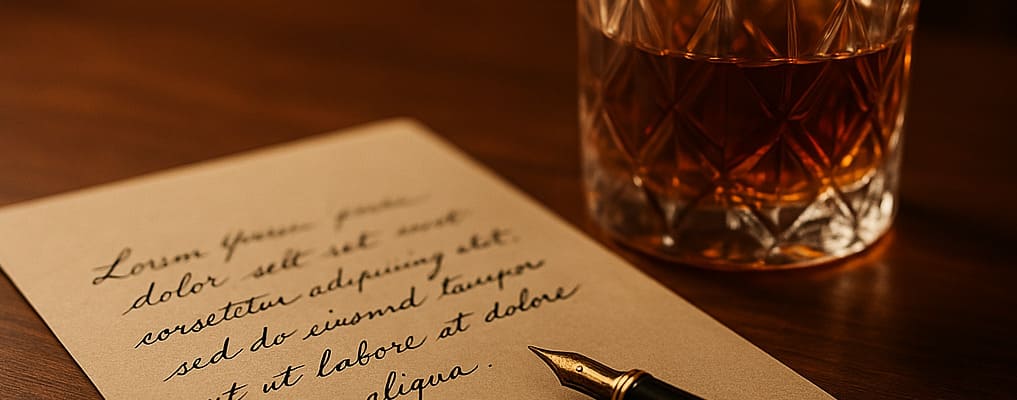 Lorem
dolor selt set
corsetetur adipuiing elit.
sed do eiusmd taupor
ut labore at dolore
aliqua.